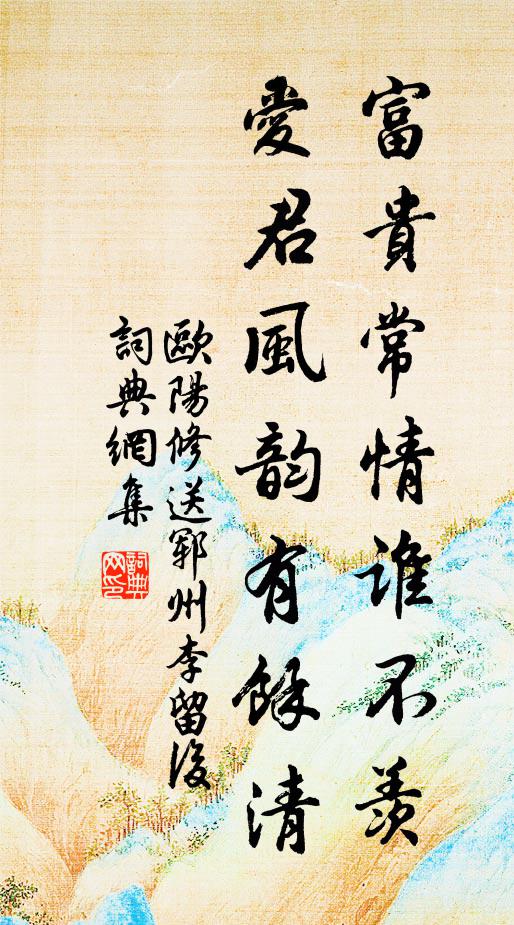 富貴常情誰不羨
愛君風韵有餘清
歐陽修送鄆州李留後
詞典網集
詞典